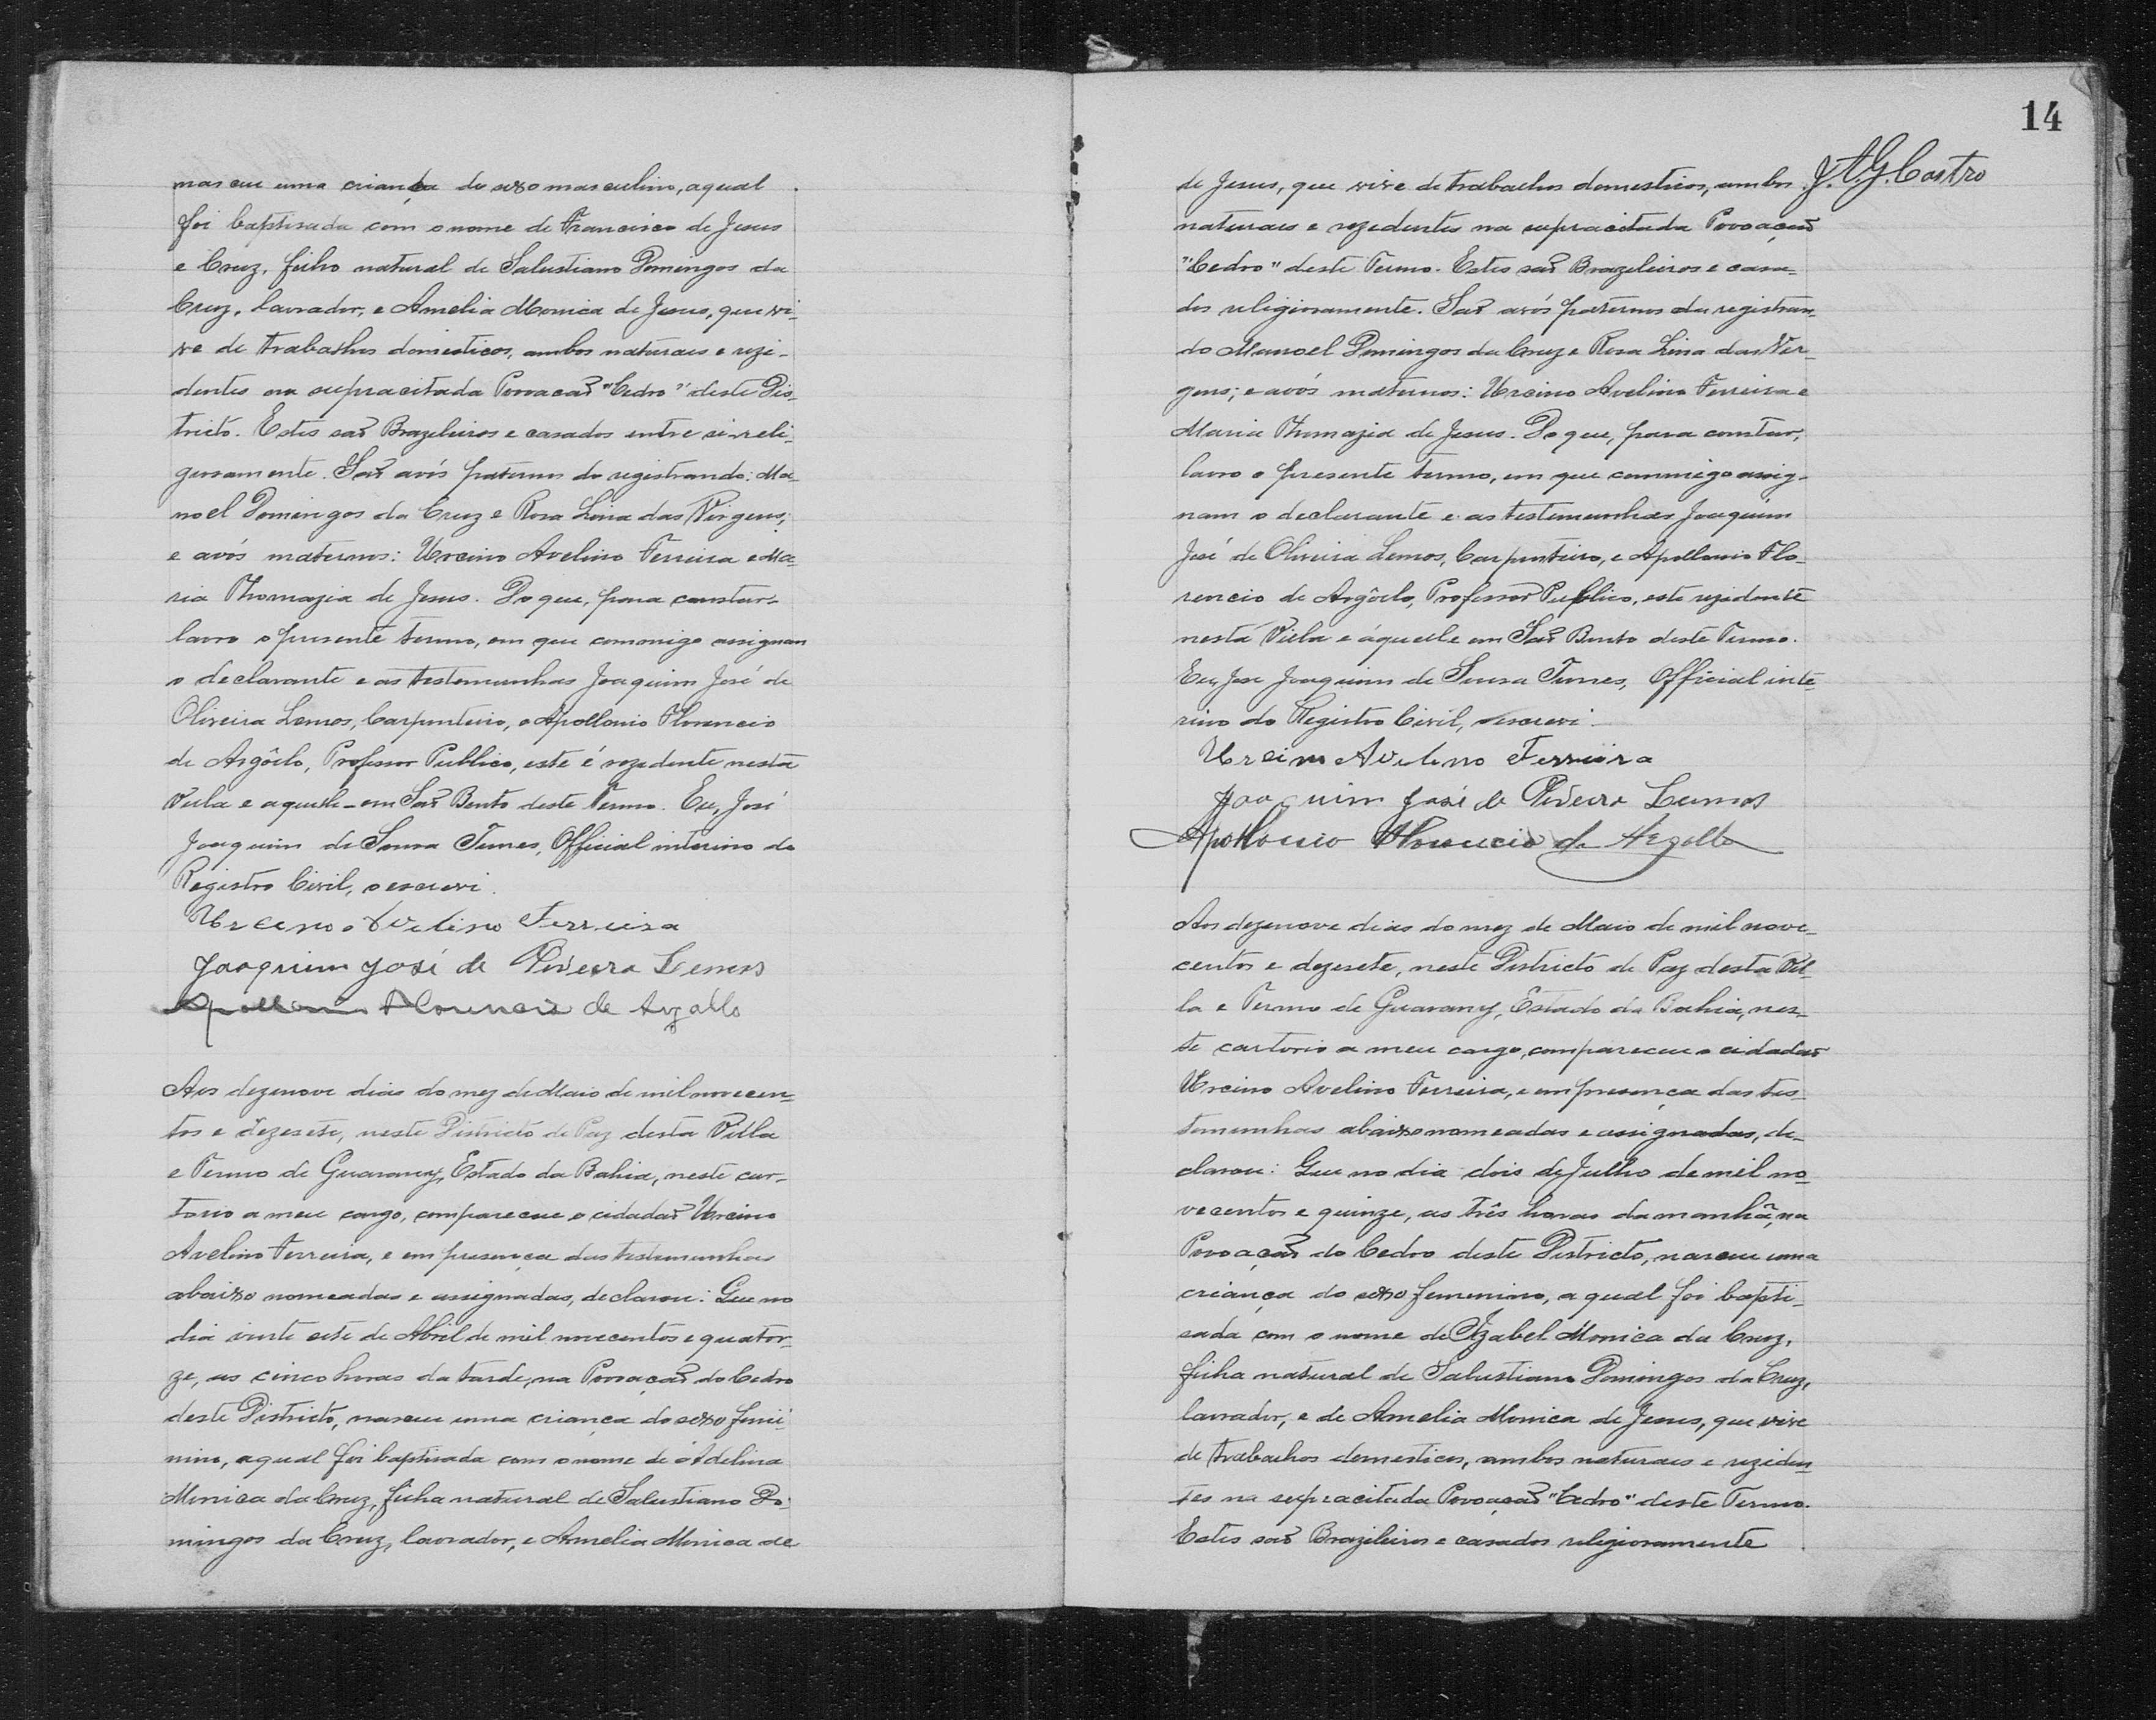 nasceu uma criança do sexo masculino, a qual
foi baptisada com o nome de Francisco de Jesus
e Cruz, filho natural de Salustiano Domingos da
Cruz, lavrador, e Amelia Monica de Jesus, que vi-
ve de trabalhos domesticos, ambos naturaes e rezi-
dentes na supracitada Povoacaõ "Cedro" deste Dis-
tricto. Estes saõ Brazileiros e casados entre si reli-
giosamente. Saõ avós paternos do registrando: Ma-
noel Domingos da Cruz e Rosa Lina das Virgens;
e avós maternos: Urcino Avelino Ferreira e Ma-
ria Thomazia de Jesus. Do que, para constar,
lavro o presente termo, em que commigo assignam
o declarante e as testemunhas Joaquim José de
Oliveira Lemos, Carpinteiro, e Apollonio Florencio
de Argôllo, Professor Publico, este é rezedente nesta
Villa e aquelle em Saõ Bento deste Termo. Eu, José
Joaquim de Sousa Tunes, Official interino do
Registro Civil, o escrevi.
Urcino Avelino Ferreira
Joaquim José de Oliveira Lemos
Apollonio Florencio de Argollo
Aos dezenove dias do mez de Maio de mil novecen-
tos e dezesete, neste Districto de Paz desta Villa
e Termo de Guarany, Estado da Bahia, neste car-
torio a meu cargo, compareceu o cidadaõ Urcino
Avelino Ferreira, e em presença das testemunhas
abaixo nomeadas e assignadas, declarou: Que no
dia vinte sete de Abril de mil novecentos e quator-
ze, as cinco horas da tarde, na Povoaçaõ do Cedro
deste Districto, nasceu uma criança do sexo femi-
nino, a qual foi baptisada com o nome de Adelina
Monica da Cruz, filha natural de Salustiano Do-
mingos da Cruz, lavrador, e Amelia Monica de
14
J. A. G. Castro
de Jesus, que vive de trabalhos domesticos, ambos
naturaes e rezedentes na supracitada Povoaçaõ
"Cedro" deste Termo. Estes saõ Brazileiros e casa-
dos religiosamente. Saõ avós paternos da registran-
do Manoel Domingos da Cruz e Rosa Lina das Vir-
gens; e avós maternos: Urcino Avelino Ferreira e
Maria Thomazia de Jesus. Do que, para constar,
lavro o presente termo, em que commigo assig-
nam o declarante e as testemunhas Joaquim
José de Oliveira Lemos, Carpinteiro, e Apollonio Flo-
rencio de Argôllo, Professor Publico, este rezidente
nesta Villa e áquelle em Saõ Bento deste Termo.
Eu, José Joaquim de Sousa Tunes, Official inte-
rino do Registro Civil, o escrevi.
Urcino Avelino Ferreira
Joaquim José de Oliveira Lemos
Apollonio Florencio de Argollo
Aos dezenove dias do mez de Maio de mil nove-
centos e dezesete, neste Districto de Paz desta Vil-
la e Termo de Guarany, Estado da Bahia, nes-
te cartorio a meu cargo, compareceu o cidadaõ
Urcino Avelino Ferreira, e em presença das tes-
temunhas abaixo nomeadas e assignadas, de-
clarou: Que no dia dois de Julho de mil no-
vecentos e quinze, as três horas da manhã, na
Povoaçaõ do Cedro deste Districto, nasceu uma
criança do sexo femenino, a qual foi bapti-
sada com o nome de Izabel Monica da Cruz,
filha natural de Salustiano Domingos da Cruz,
lavrador, e de Amelia Monica de Jesus, que vive
de trabalhos domesticos, ambos naturaes e reziden-
tes na supracitada Povoaçaõ "Cedro" deste Termo.
Estes saõ Brazileiros e casados religiosamente